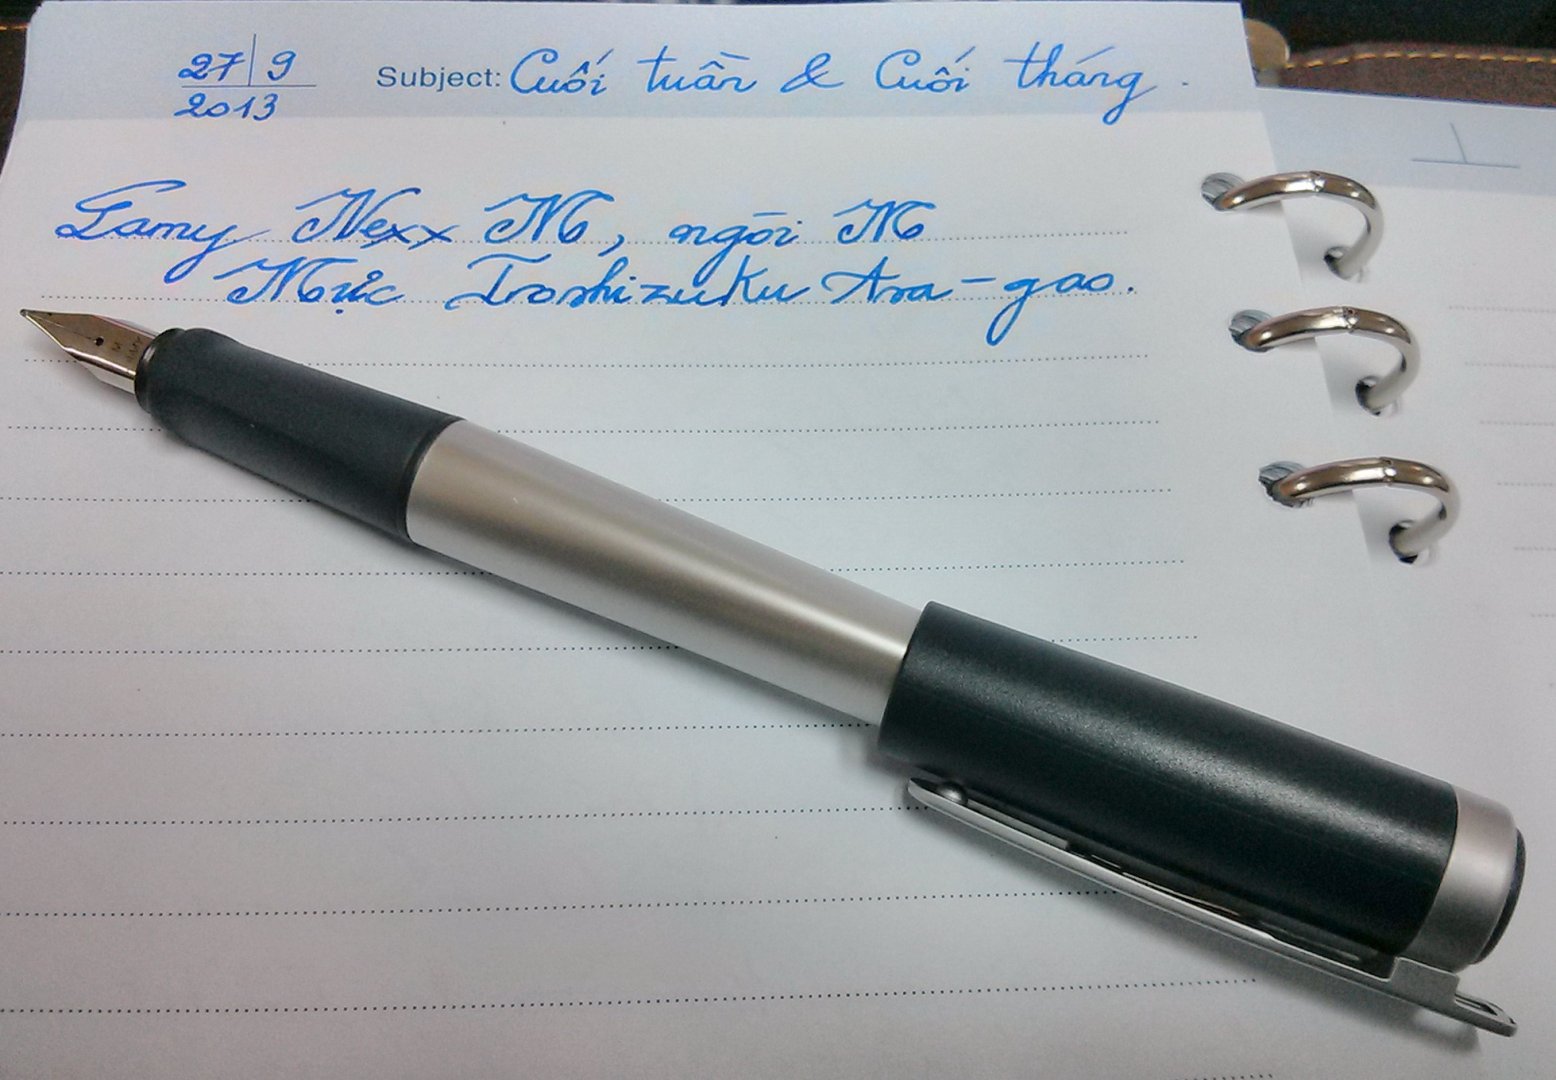 27/9
2013
Subject: Cuối tuần & Cuối tháng.
Lamy Nexx M, ngòi M
Mực Iroshizuku Asa-gao.
M
LAMY